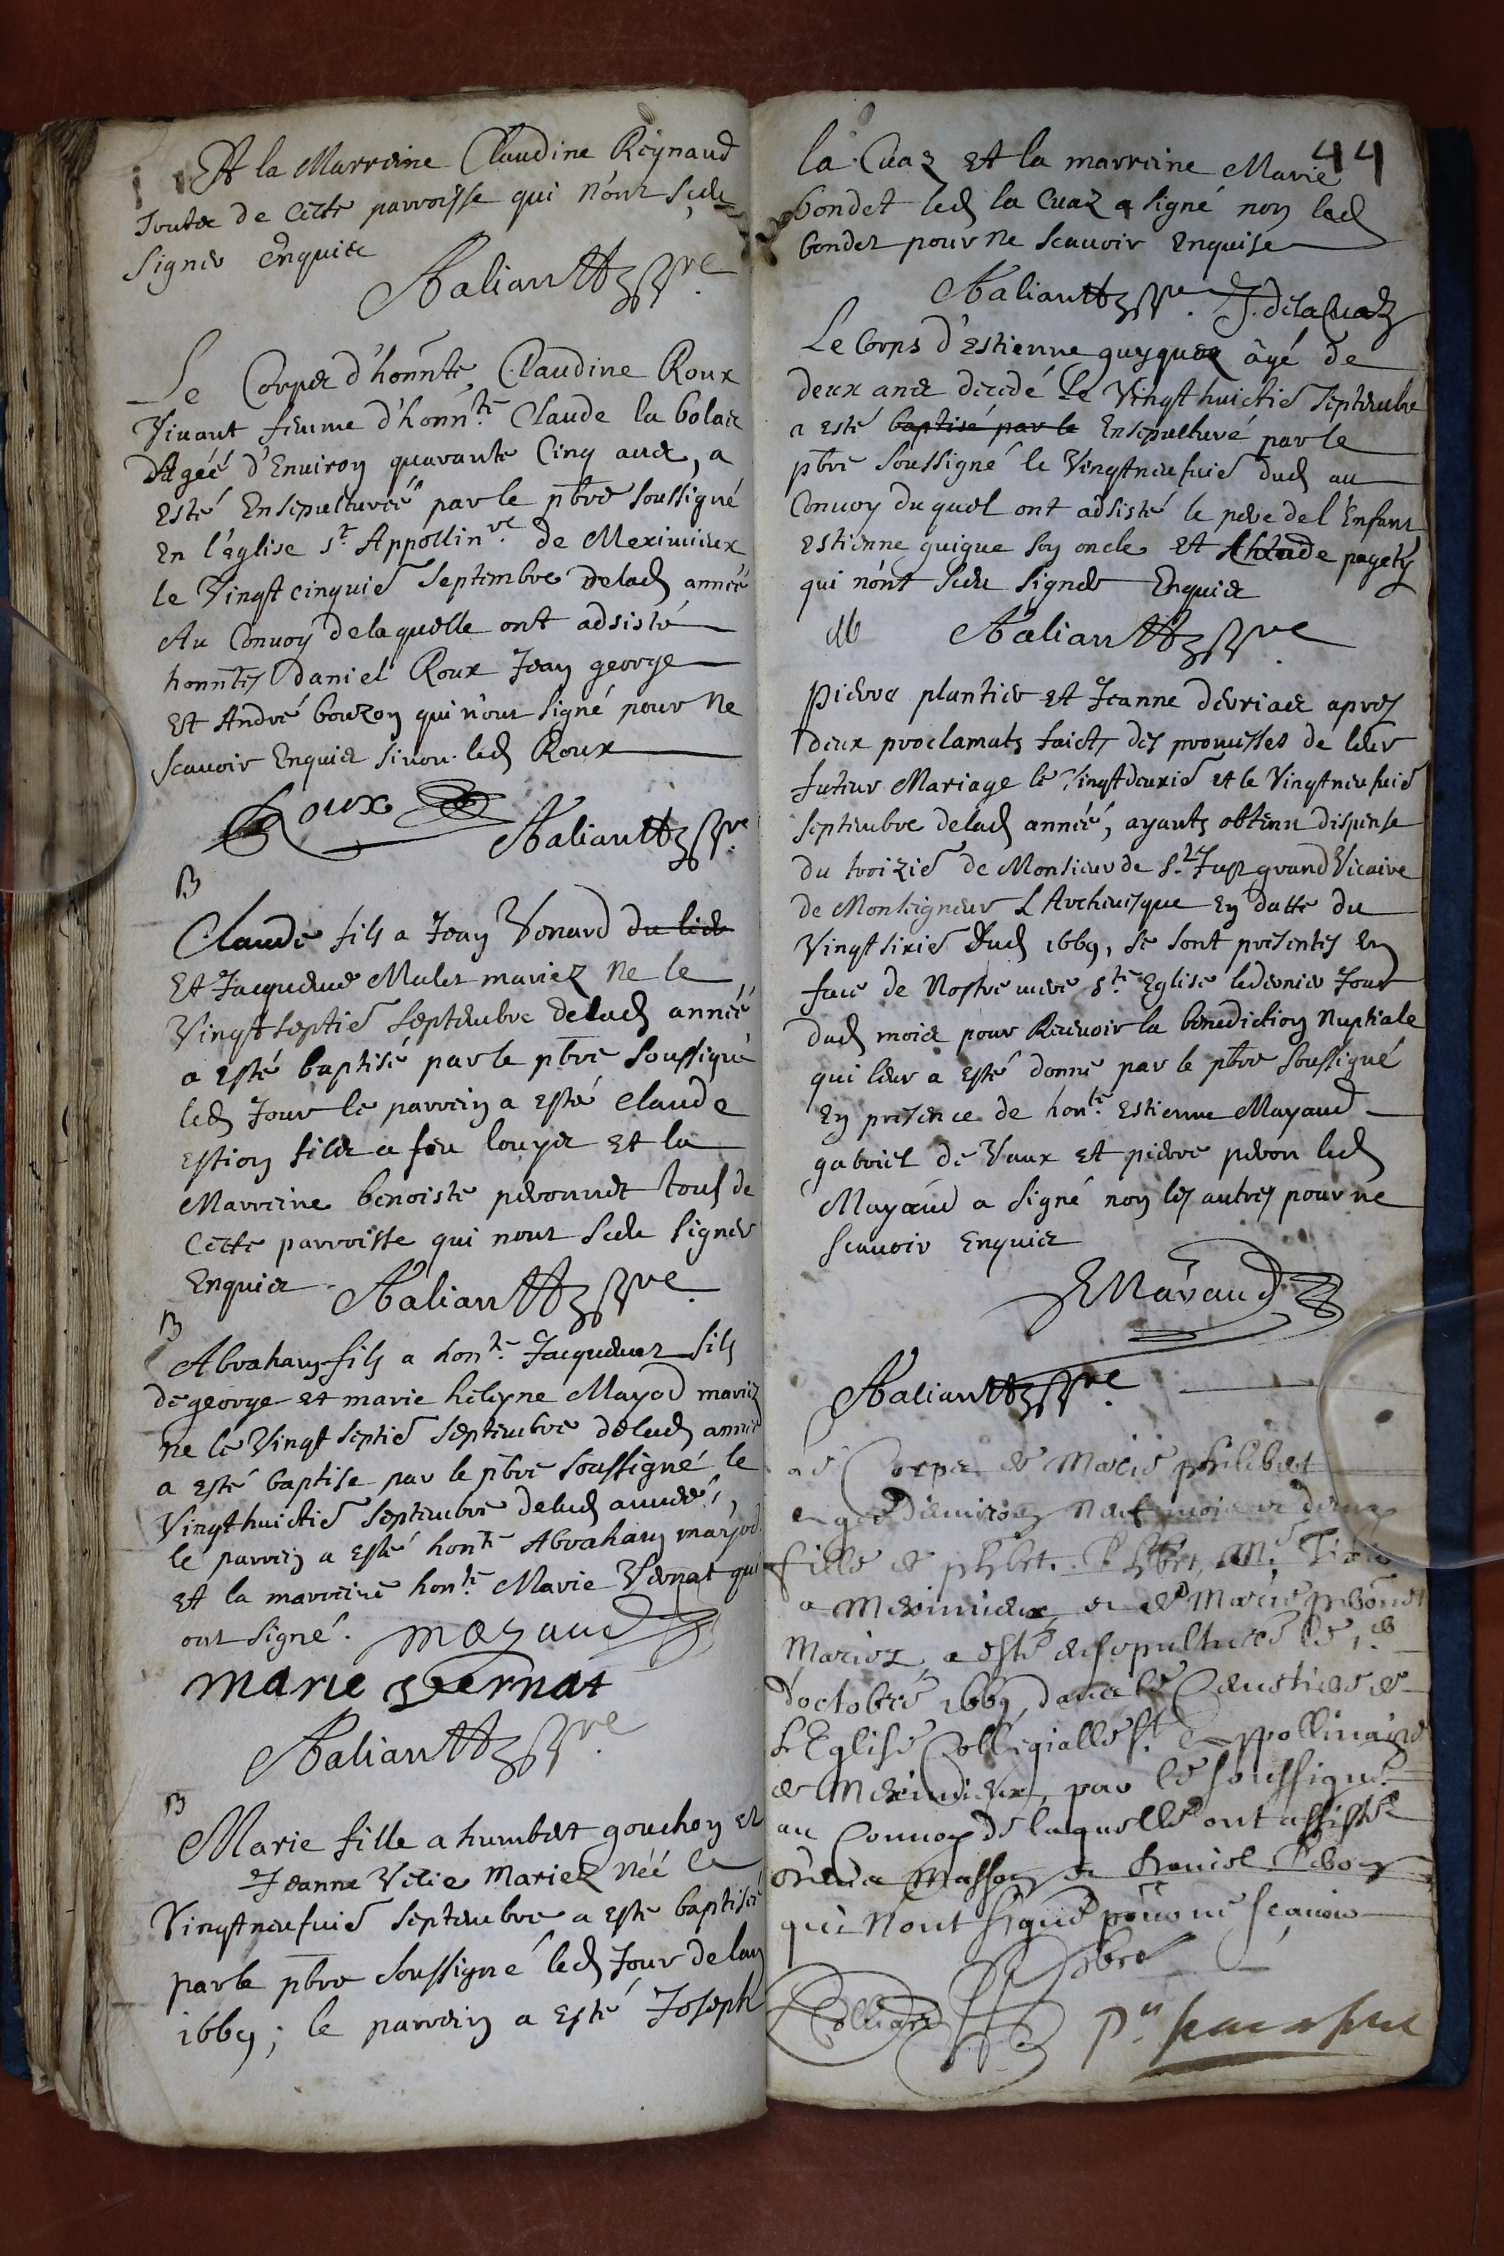 Et la Marreine Claudine Reynaud
toutes de cette parroisse qui nont sceu
signer enquises
Haliantt pbre
Le Corps d'honnte Claudine Roux
Vivant femme d'honn.te Claude la bolas
Agéé d'Environ quarante Cinq ans, a
esté Ensepulturéé par le pbre soussigné
En l'eglise st Appollin.re de Meximieux
le Vingt cinquie septembre delad année
Au Convoy de laquelle ont adsisté
honntes daniel Roux Jean george
Et André bouzon qui n'ont signé pour ne
scauoir Enquis sinon led Roux
Roux
Haliantt pbre
B
Claude fils a Jean Vonard du lieu
Et Jacqueme Mulet mariez ne le
Vingt septie septembre delad année
a esté baptisé par le pbre soussigné
led Jour le parrein a esté Claude
estion fils a feu louys et la
Marreine benoiste peronnet tous de
Cette parroisse qui nont sceu signer
Enquis
Haliantt pbre
B
Abraham fils a hon.te Jacquemet fils
de george et marie heleyne Mayod mariez
ne le Vingt septie septembre delad année
a esté baptise par le pbre soussigné le
Vingt huictie septembre delad année,
le parrein a esté honte Abraham mayod
et la marreine hon.te Marie Vernat qui
ont signé. mayaud
marie vernat
Haliantt pbre
B
Marie fille a humbert gouchon et
Jeanne Mariez néé le
Vingt neufuie septembre a este baptiséé
par le pbre soussigné led Jour de lan
1669; le parrein a esté Joseph
44
la Cuaz Et la marreine Marie
bondet led la Cuaz a signé non lad
bondet pour ne scauoir enquise
Haliantt pbre J. dela Cuaz
Le Corps d'Estienne guygue âgé de
deux ans decedé le Vingt huictie septembre
a esté baptisé par le Ensepulturé par le
pbre soussigné le Vingtneufuie dud au
Convoy duquel ont adsisté le pere de l'Enfant
Estienne guigue son oncle et Claude pagety
qui n'ont sceu signer Enquis
M
Haliantt pbre
Pierre plantier et Jeanne derrias apres
deux proclamats faicts des promesses de leur
futeur Mariage le Vingtdeuxie et le Vingtneufuie
septembre delad année, ayants obtenu dispense
du troizie de Monsieur de St Just grand Vicaire
de Monseigneur L Archeuesque En datte du
Vingt sixie dud 1669, se sont presentes En
face de Nostre mere ste Eglise le dernier Jour
dud mois pour Receuoir la benediction Nuptiale
qui leur a esté donné par le pbre soussigné
En presence de honte Estienne Mayaud
gabriel de Vaux et pierre peron led
Mayaud a signé non les autres pour ne
scauoir Enquis
E Mayaud
Haliantt pbre
Le Corps de Marie philibert
fille de
a Meximieux et de Marie
Mariez, a esté ensepulturé le
d'octobre 1669, dans le Cemetiere de
L'Eglise Collegialle St Appollinaire
de Meximieux, par le soussigné
au Convoy de laquelle ont assisté
Masson et
qui N'ont signé pour ne scauoir